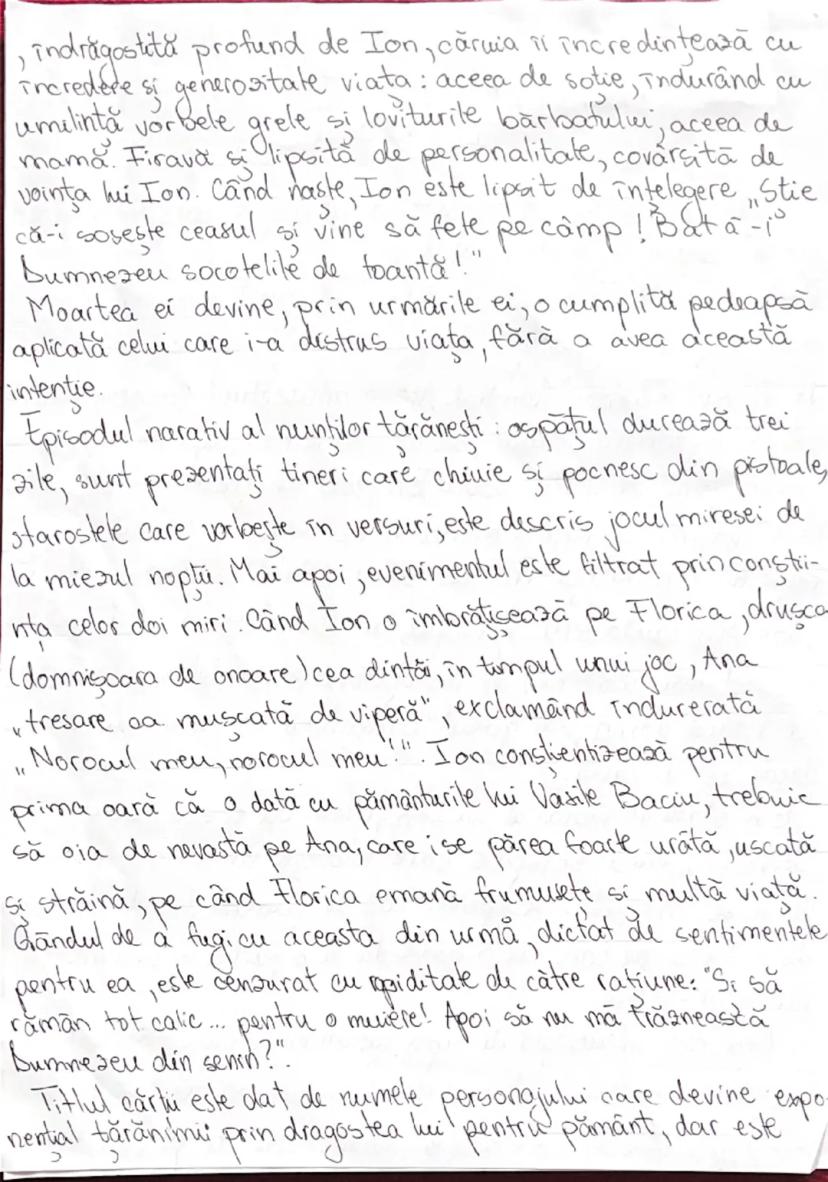 , îndrăgostită profund de Ion, căruia îi încredințează cu
încredere și generozitate viața: aceea de soție, îndurând cu
umilință vorbele grele și loviturile bărbatului, aceea de
mamă. Firavă și lipsită de personalitate, covârșită de
voința lui Ion. Când naște, Ion este lipsit de înțelegere „Știe
că-i sosește ceasul și vine să fete pe câmp! Bată-i
Dumnezeu socotelile de toantă!"
Moartea ei devine, prin urmările ei, o cumplită pedeapsă
aplicată celui care i-a distrus viața, fără a avea această
intenție.
Episodul narativ al nunților țărănești: ospățul durează trei
zile, sunt prezentați tineri care chiuie și pocnesc din pistoale,
starostele care vorbește în versuri, este descris jocul miresei de
la miezul nopții. Mai apoi, evenimentul este filtrat prin conștii-
nța celor doi miri. Când Ion o îmbrățișează pe Florica, drușca
(domnișoara de onoare) cea dintâi, în timpul unui joc, Ana
„tresare ca mușcată de viperă", exclamând îndurerată
„Norocul meu, norocul meu!". Ion conștientizează pentru
prima oară că o dată cu pământurile lui Vasile Baciu, trebuie
să oia de nevastă pe Ana, care i se părea foarte urâtă, uscată
și străină, pe când Florica emană frumusețe și multă viață.
Gândul de a fugi cu aceasta din urmă, dictat de sentimentele
pentru ea, este cenzurat cu rapiditate de către rațiune: "Și să
rămân tot calic... pentru o muiere! Apoi să nu mă trăznească
Dumnezeu din senin?".
Titlul cărții este dat de numele personajului care devine expo-
nențial țărănimii prin dragostea lui pentru pământ, dar este